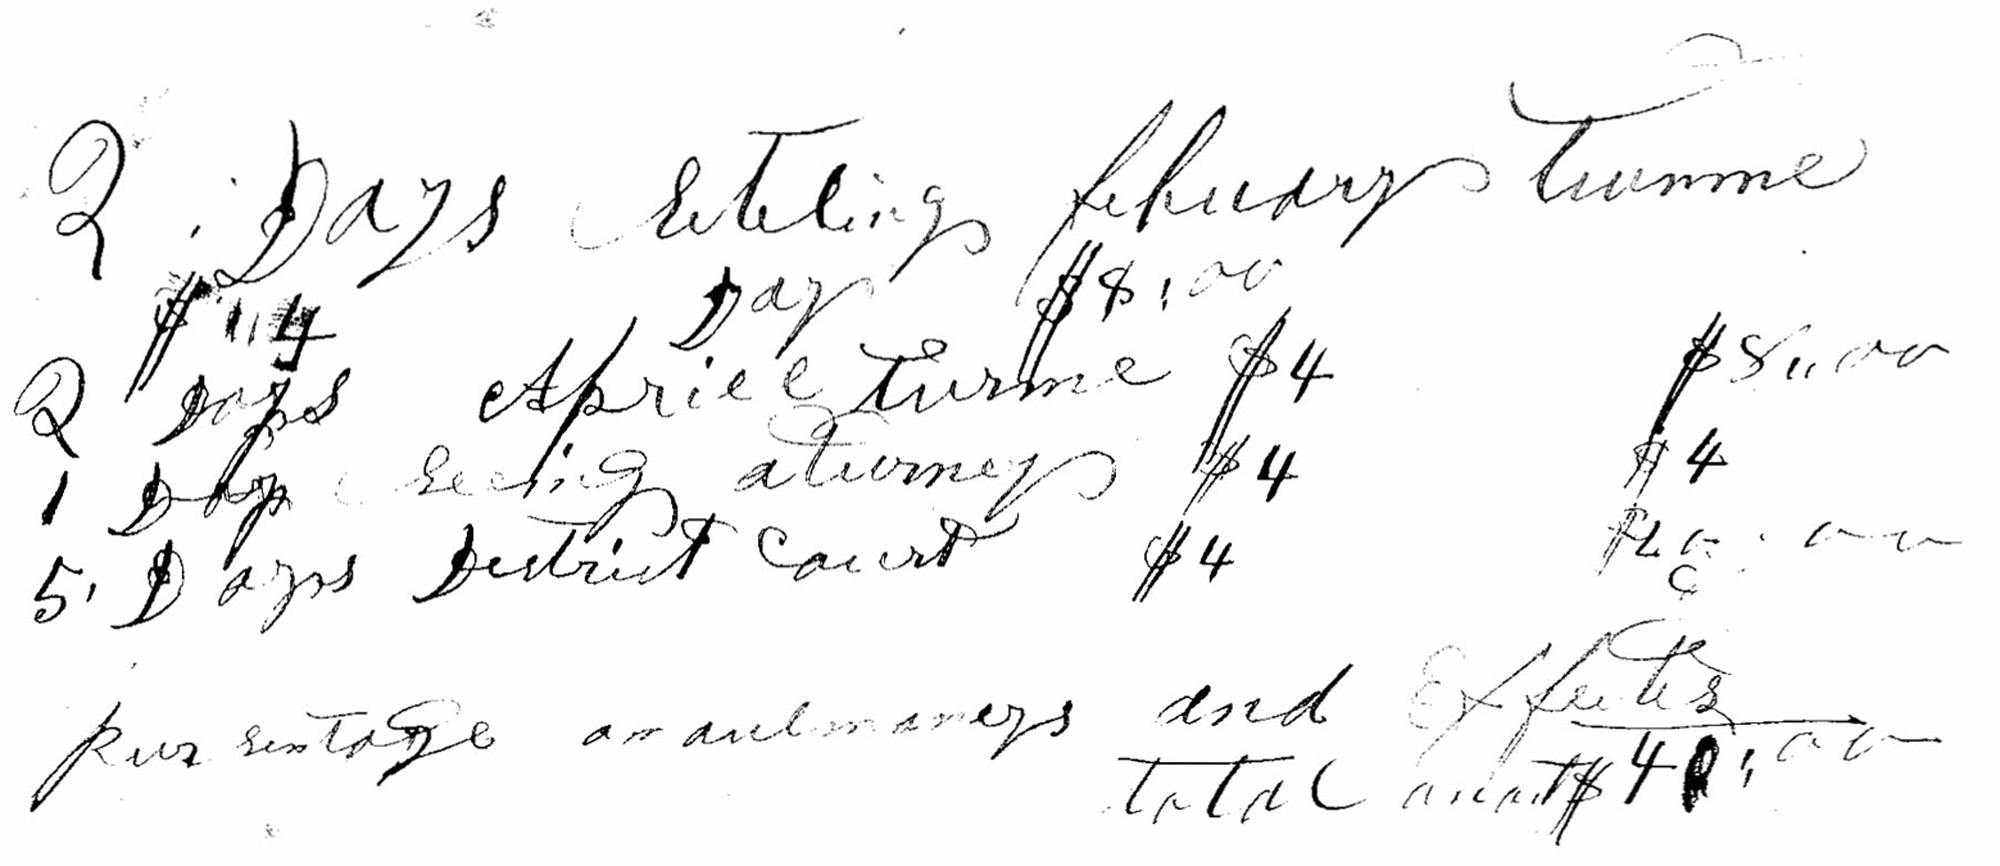 2 Days Seteling febuary Turnme
$ 4 Day $8.00
2 Days Apriel Turme $4 $8.00
1 Day Seeing aturneys $4 $4
5 Days District Court $4 $20.00
pursentage on aul moneys and Effects
total $40.00